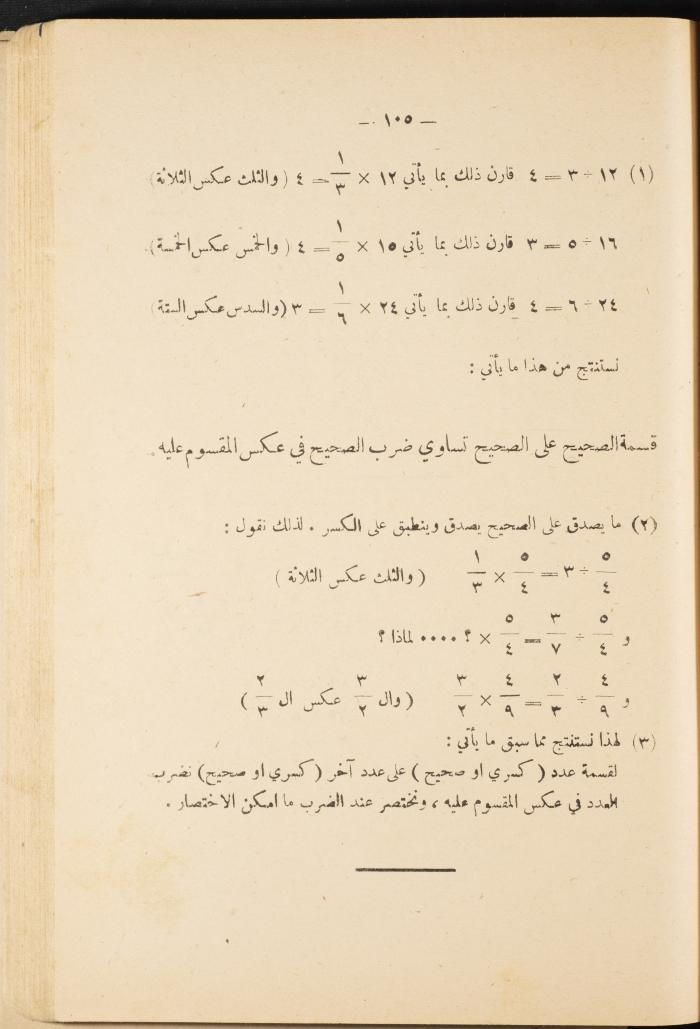 — ١٠٥ —
(١) ١٢ ÷ ٣ = ٤ قارن ذلك بما يأتي ١٢ × ١/٣ = ٤ (والثلث عكس الثلاثة)
١٦ ÷ ٥ = ٣ قارن ذلك بما يأتي ١٥ × ١/٥ = ٤ (والخمس عكس الخمسة).
٢٤ ÷ ٦ = ٤ قارن ذلك بما يأتي ٢٤ × ١/٦ = ٣ (والسدس عكس الستة)
نستنتج من هذا ما يأتي :
قسمة الصحيح على الصحيح تساوي ضرب الصحيح في عكس المقسوم عليه.
(٢) ما يصدق على الصحيح يصدق وينطبق على الكسر . لذلك نقول :
٥/٤ ÷ ٣ = ٥/٤ × ١/٣ (والثلث عكس الثلاثة)
و ٥/٤ ÷ ٣/٧ = ٥/٤ × ؟ .... لماذا ؟
و ٤/٩ ÷ ٢/٣ = ٤/٩ × ٣/٢ (وال ٣/٢ عكس ال ٢/٣)
(٣) لهذا نستنتج مما سبق ما يأتي :
لقسمة عدد (كسري او صحيح) على عدد آخر (كسري او صحيح) نضرب
العدد في عكس المقسوم عليه ، ونختصر عند الضرب ما امكن الاختصار .